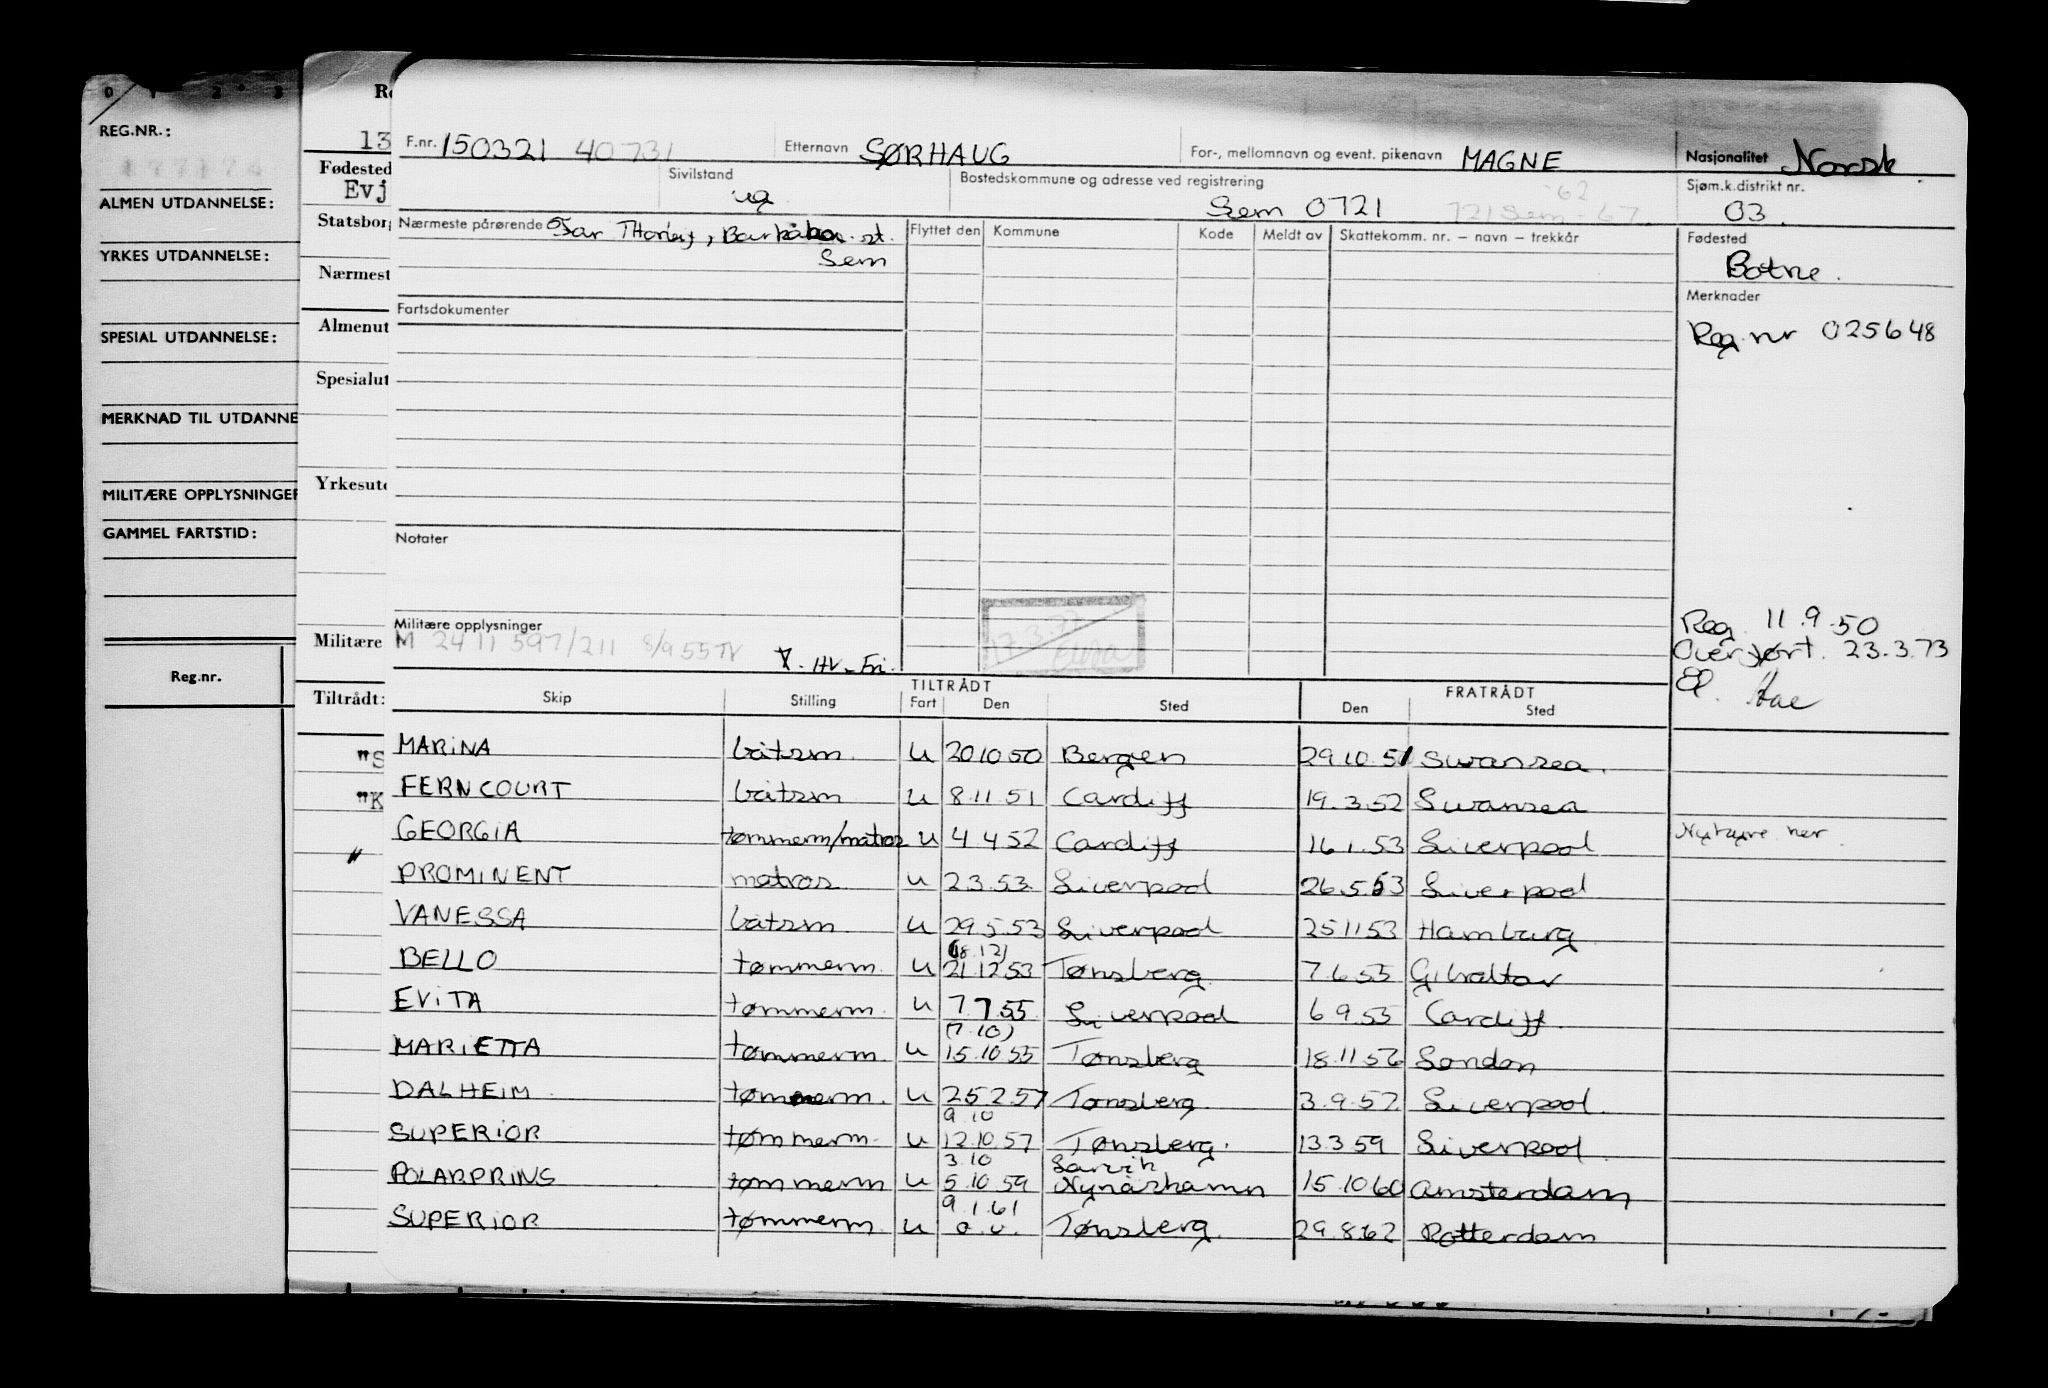 0 1 2 3
REG.NR.:
ALMEN UTDANNELSE:
YRKES UTDANNELSE:
SPESIAL UTDANNELSE:
MERKNAD TIL UTDANNE
MILITÆRE OPPLYSNINGER
GAMMEL FARTSTID:
Reg.nr.
Re
13
Fødested
Evj
Statsborg
Nærmest
Almenut
Spesialut
Yrkesutd
Militære
Tiltrådt:
"S
"K
"
F.nr. 150321 40731 Etternavn SØRHAUG For-, mellomnavn og event. pikenavn MAGNE Nasjonalitet Norsk
Sivilstand ug Bostedskommune og adresse ved registrering Sem 0721 721 Sem - 67 -62 Sjøm.k.distrikt nr. 03.
Nærmeste pårørende Far st. Flyttet den Kommune Kode Meldt av Skattekomm. nr. – navn – trekkår Fødested
Sem Botne.
Merknader
Fartsdokumenter
Reg.nr 025648
Notater
Militære opplysninger
M 2411 597/211 8/9 55 TV V. HV-Fri.
17.3.77
Reg. 11.9.50
Overført. 23.3.73
El. Hae
TILTRÅDT FRATRÅDT
Skip Stilling Fart Den Sted Den Sted
MARINA båtsm. u 20.10.50 Bergen 29.10.51 Swansea.
FERNCOURT båtsm u 8.11.51 Cardiff 19.3.52 Swansea
GEORGIA tømmerm/matros u 4 4 52 Cardiff 16.1.53 Liverpool Nyhyre her
PROMINENT matros u 2.3.53. Liverpool 26.5.53 Liverpool
VANESSA båtsm. u 29.5.53 Liverpool 25.11.53 Hamburg
(8.12)
BELLO tømmerm. u 21.12.53 Tønsberg 7.6.55 Gibraltar
EVITA tømmerm. u 7.7.55 Liverpool 6 9.55 Cardiff.
(7.10)
MARIETTA tømmerm. u 15.10.55 Tønsberg 18.11.56 London
DALHEIM tømmerm. u 25.2.57 Tønsberg 3.9.57 Liverpool.
9.10
SUPERIOR tømmerm. u 12.10.57 Tønsberg. 13.3.59 Liverpool
3.10 Larvik
POLARPRINS tømmerm u 5.10.59 Nynäshamn 15.10.60 Amsterdam
9.1.61
SUPERIOR tømmerm. u o.v. Tønsberg 29.8.62 Rotterdam